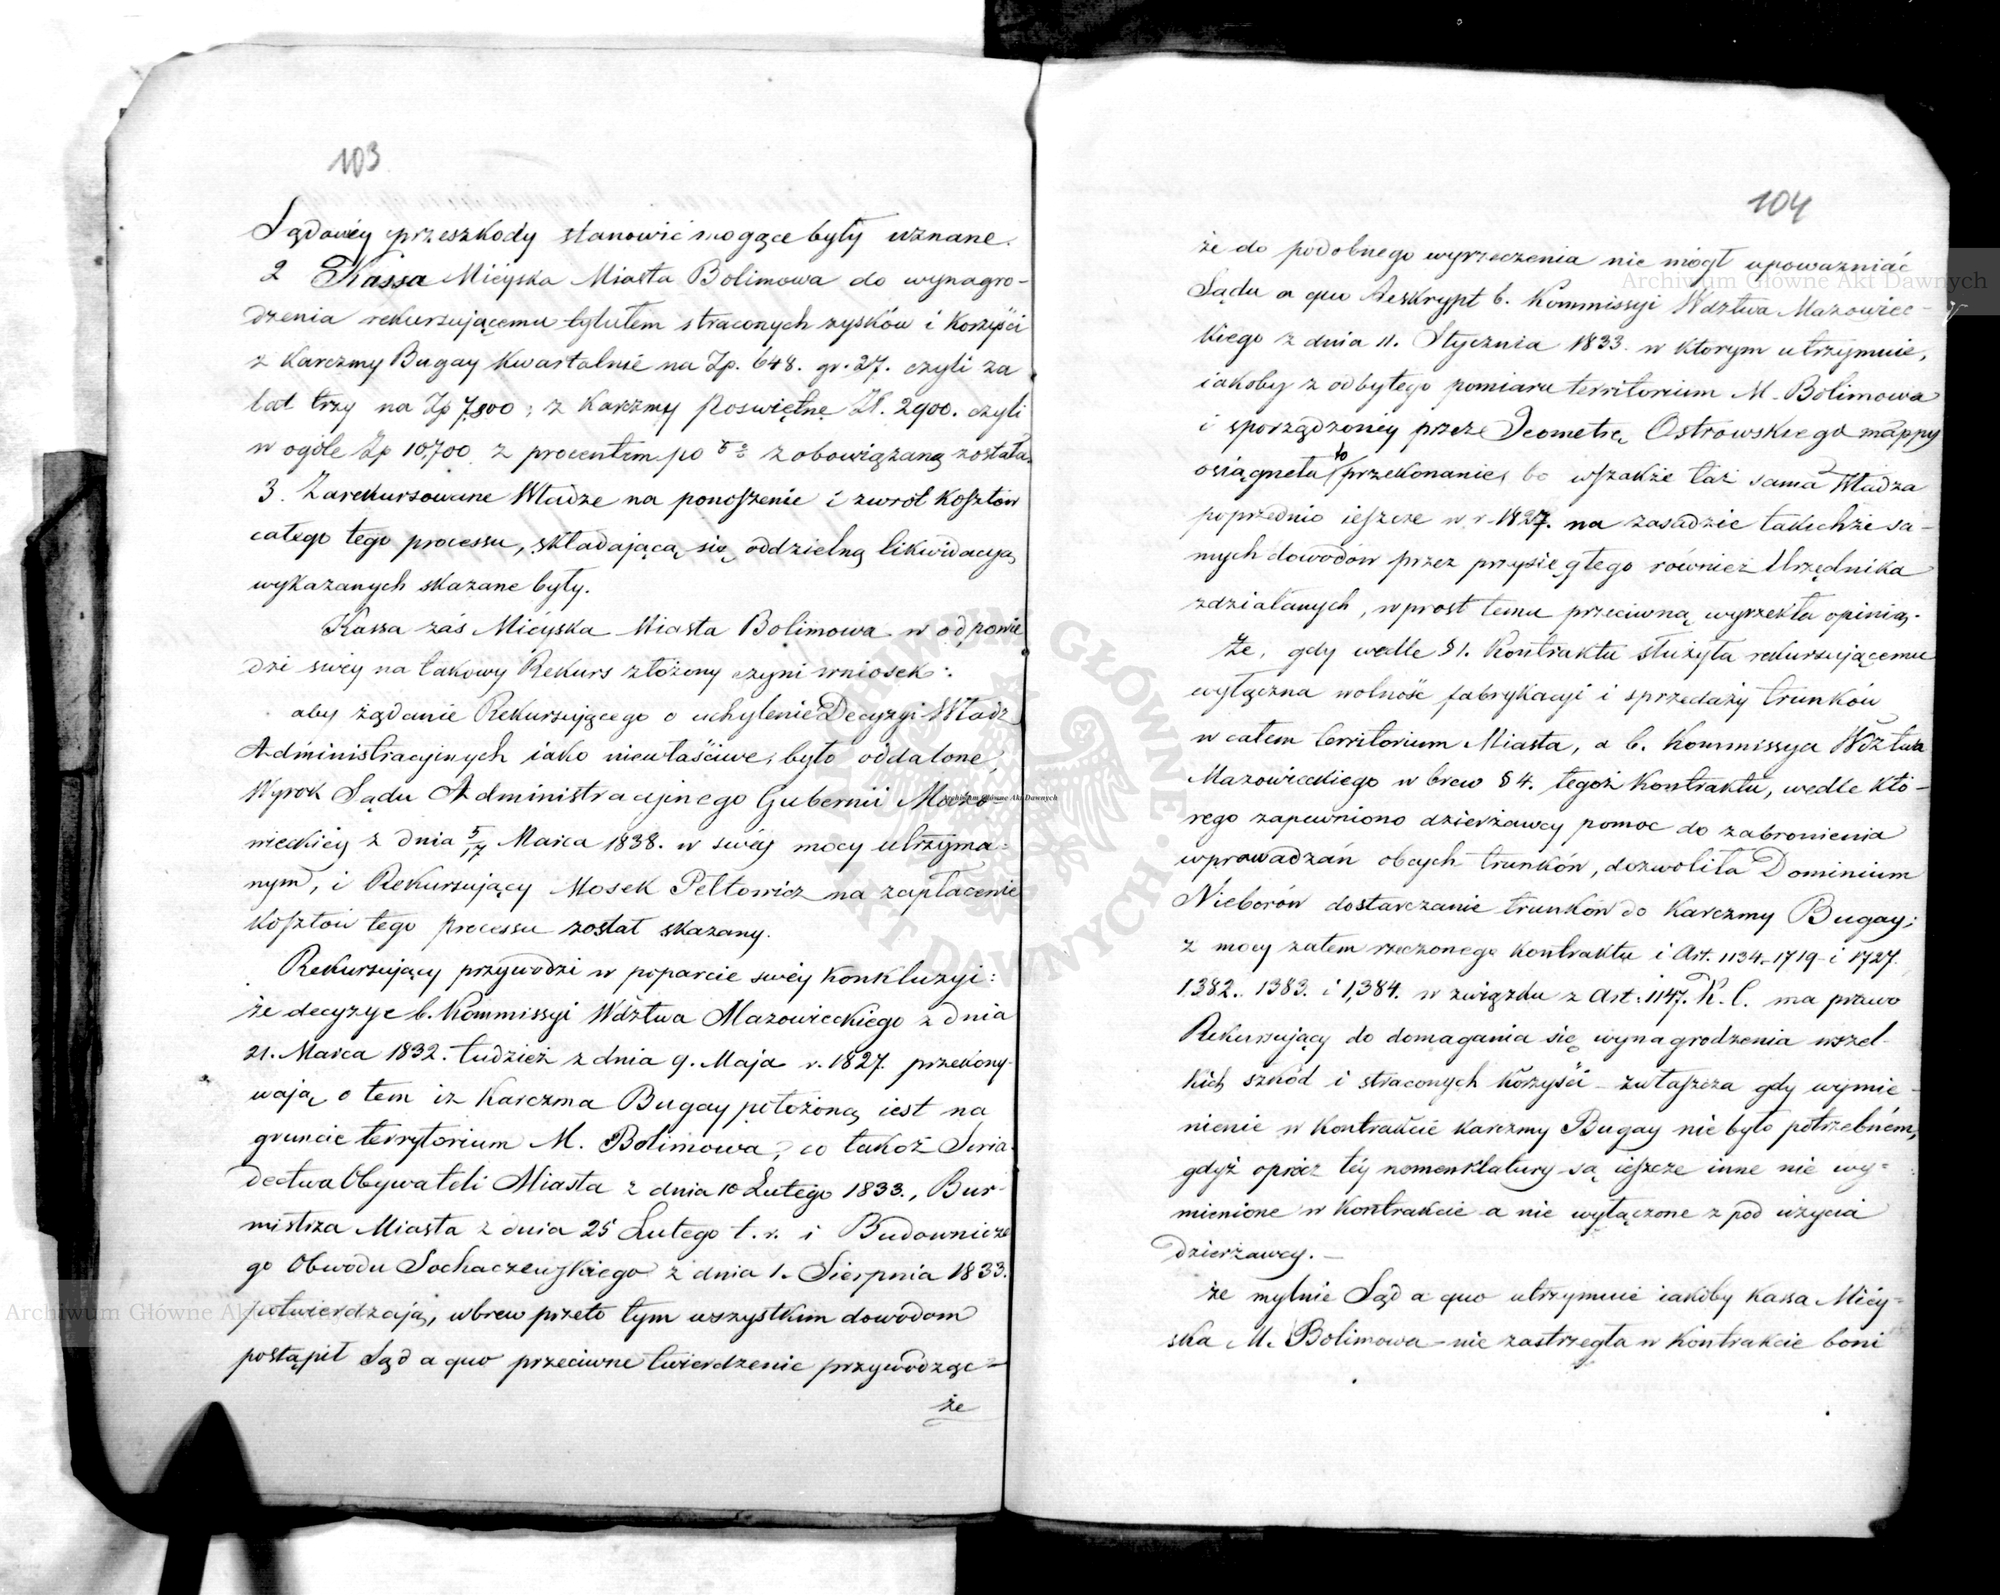 103
Sądowéy przeszkody stanowić mogące były uznane.
2 Kassa Mieyska Miasta Bolimowa do wynagro-
dzenia rekursującemu tytułem straconych zysków i korzyści
z Karczmy Bugay kwartalnie na Zp. 648. gr. 27. czyli za
lat trzy na Zp 7,800, z Karczmy Poswiętne Zł. 2900. czyli
w ogóle Zp 10,700 z procentem po 5 z obowiązaną została.
3. Zarekursowane Władze na ponoszenie i zwrot kosztów
całego tego processu, składającą się oddzielną likwidacyą
wykazanych skazane były.
Kassa zaś Mieyska Miasta Bolimowa w odpowie
dzi swéy na takowy Rekurs złożony czyni wniosek:
aby żądanie Rekursującego o uchylenie Decyzyi Władz
Administracyinych iako niewłaściwe, było oddalone,
Wyrok Sądu Administracyinego Gubernii Mazo
wieckiéy z dnia 5/17 Marca 1838. w swéy mocy utrzyma-
nym, i Rekursujący Mosek Peltowicz na zapłacenie
kosztów tego processu został skazany.
Rekursujący przywodzi w poparcie swéy konkluzyi:
że decyzye b. Kommissyi Wdztwa Mazowieckiego z dnia
21. Marca 1832. tudzież z dnia 9. Maja r. 1827. przekony-
wają o tem iż Karczma Bugay położoną iest na
gruncie terrytorium M. Bolimowa, co takoż Swia-
dectwa Obywateli Miasta z dnia 10 Lutego 1833., Bur-
mistrza Miasta z dnia 25 Lutego t. r. i Budownicze
go Obwodu Sochaczewskiego z dnia 1. Sierpnia 1833.
potwierdzają, wbrew przeto tym wszystkim dowodom
postąpił Sąd a quo przeciwne twierdzenie przywodząc
że
104
że do podobnego wyrzeczenia nie mógł upoważniać
Sądu a quo Reskrypt b. Kommissyi Wdztwa Mazowiec-
kiego z dnia 11. Stycznia 1833. w którym utrzymuie,
iakoby z odbytego pomiaru territorium M. Bolimowa
i sporządzonéy przez Jeometrę Ostrowskiego mappy
osiągneła to przekonanie, bo wszakże taż sama Władza
poprzednio ieszcze w r. 1827. na zasadzie takichże sa-
mych dowodów przez przysięgłego również Urzędnika
zdziałanych, wprost temu przeciwną wyrzekła opinią.
Że, gdy wedle § 1. Kontraktu służyła rekursującemu
wyłączna wolność fabrykacyi i sprzedaży trunków
w całem territorium Miasta, a b. Kommissya Wdztwa
Mazowieckiego wbrew § 4. tegoż Kontraktu, wedle któ-
rego zapewniono dzierżawcy pomoc do zabronienia
wprowadzań obcych trunków, dozwoliła Dominium
Nieborów dostarczanie trunków do Karczmy Bugay;
z mocy zatem rzeczonego kontraktu i Art. 1134. 1719 i 1727.
1382. 1383. i 1384. w związku z Art: 1147. K. C. ma prawo
Rekursujący do domagania się wynagrodzenia wszel-
kich szkód i straconych korzyści zwłaszcza gdy wymie-
nienie w Kontrakcie karczmy Bugay nie było potrzebném,
gdyż oprócz téy nomenklatury są ieszcze inne nie wy-
mienione w kontrakcie a nie wyłączone z pod użycia
dzierżawcy. —
że mylnie Sąd a quo utrzymuie iakoby Kassa Miéy-
ska M. Bolimowa nie zastrzegła w kontrakcie boni
Archiwum Główne Akt Dawnych
Archiwum Główne Akt Dawnych
Archiwum Główne Akt Dawnych
ARCHIWUM GŁÓWNE AKT DAWNYCH